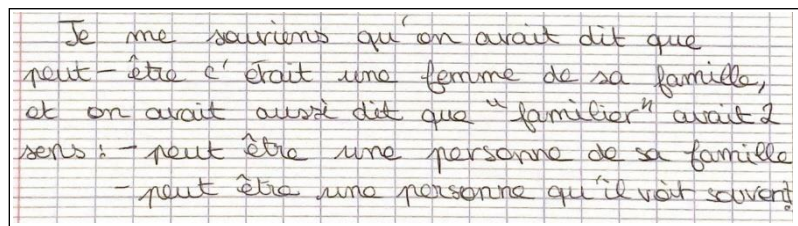 Je me souviens qu'on avait dit que
peut-être c'était une femme de sa famille,
et on avait aussi dit que "familier" avait 2
sens : - peut être une personne de sa famille
- peut être une personne qu'il voit souvent.